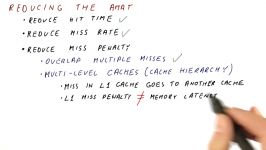 REDUCING THE AMAT
• REDUCE HIT TIME ✓
• REDUCE MISS RATE ✓
• REDUCE MISS PENALTY
• OVERLAP MULTIPLE MISSES ✓
• MULTI-LEVEL CACHES (CACHE HIERARCHY)
• MISS IN L1 CACHE GOES TO ANOTHER CACHE
• L1 MISS PENALTY ≠ MEMORY LATENCY